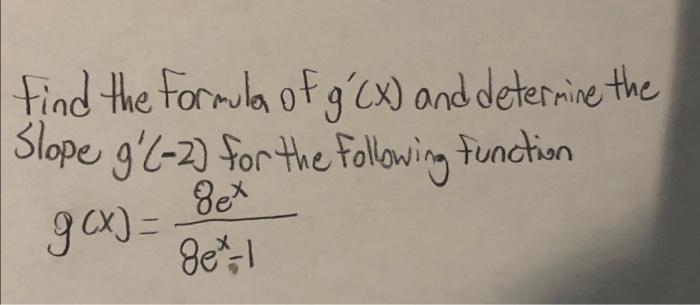 find the formula of g'(x) and determine the
Slope g'(-2) for the following function
g(x) = 8e^x / 8e^x-1